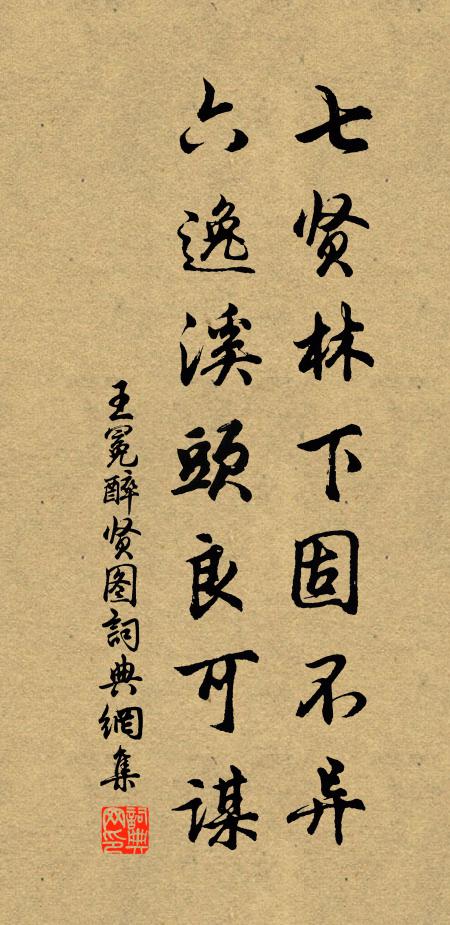 七贤林下固不异
六逸溪頭良可謀
王冕醉贤图詞典網集
詞典網印